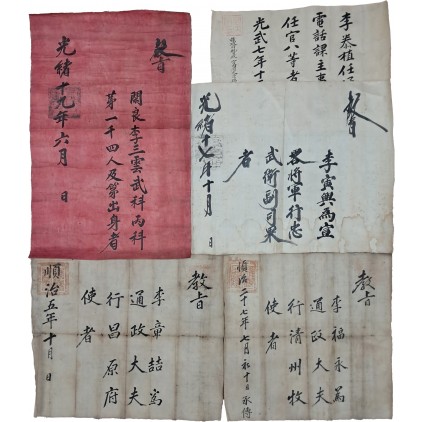 教旨
閑良李三雲武科丙科
第一千四人及第出身者
光緒十九年六月 日
李泰植任
電話課主事
任官八等者
光武七年十二
教旨
李寅興爲宣
略將軍行忠
武衛副司果
者
光緒十七年十月 日
教旨
李章喆爲
通政大夫
行昌原府
使者
順治五年十月 日
教旨
李福永爲
通政大夫
行清州牧
使者
順治二十七年七月初十日